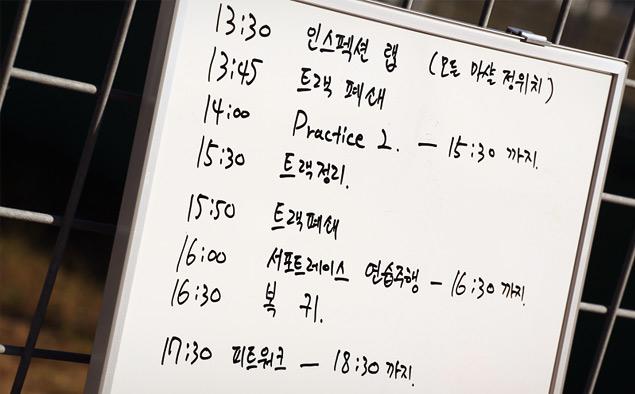 13:30 인스펙션 랩 (모든 마샬 정위치)
13:45 트랙 폐쇄
14:00 Practice 2. – 15:30 까지.
15:30 트랙정리.
15:50 트랙폐쇄
16:00 서포트레이스 연습주행 – 16:30 까지.
16:30 복 귀.
17:30 피트워크 – 18:30 까지.